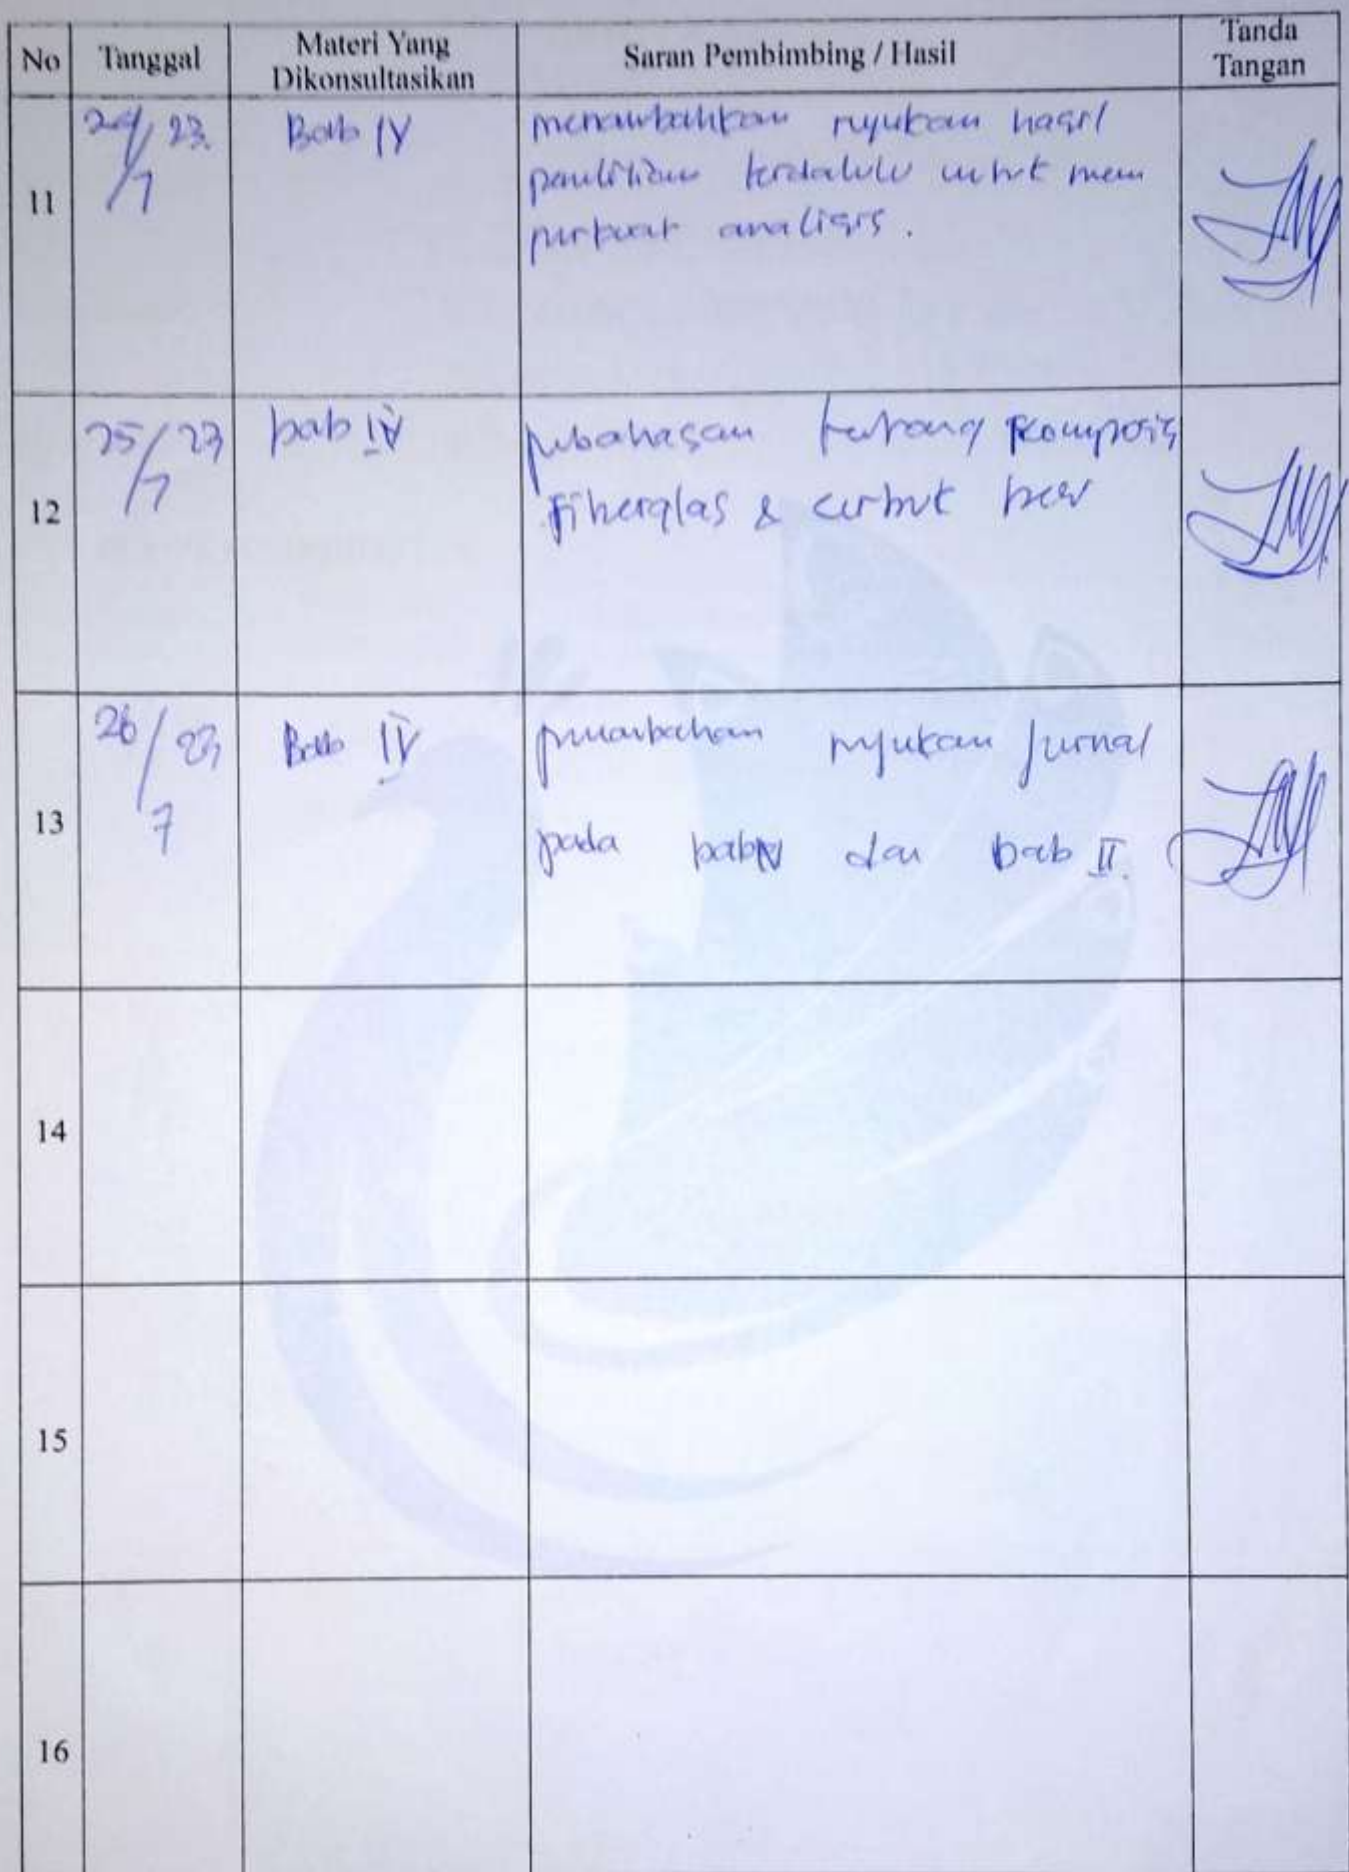 No Tanggal Materi Yang Dikonsultasikan Saran Pembimbing / Hasil Tanda Tangan
11 24/7 23. Bab IV menambahkan rujukan hasil
penelitian terdahulu untuk mem
perkuat analisis.
12 25/7 23 bab IV pembahasan tentang komposis
Fiberglas & serbuk besi
13 26/7 23 Bab IV penambahan rujukan jurnal
pada bab IV dan bab II.
14
15
16